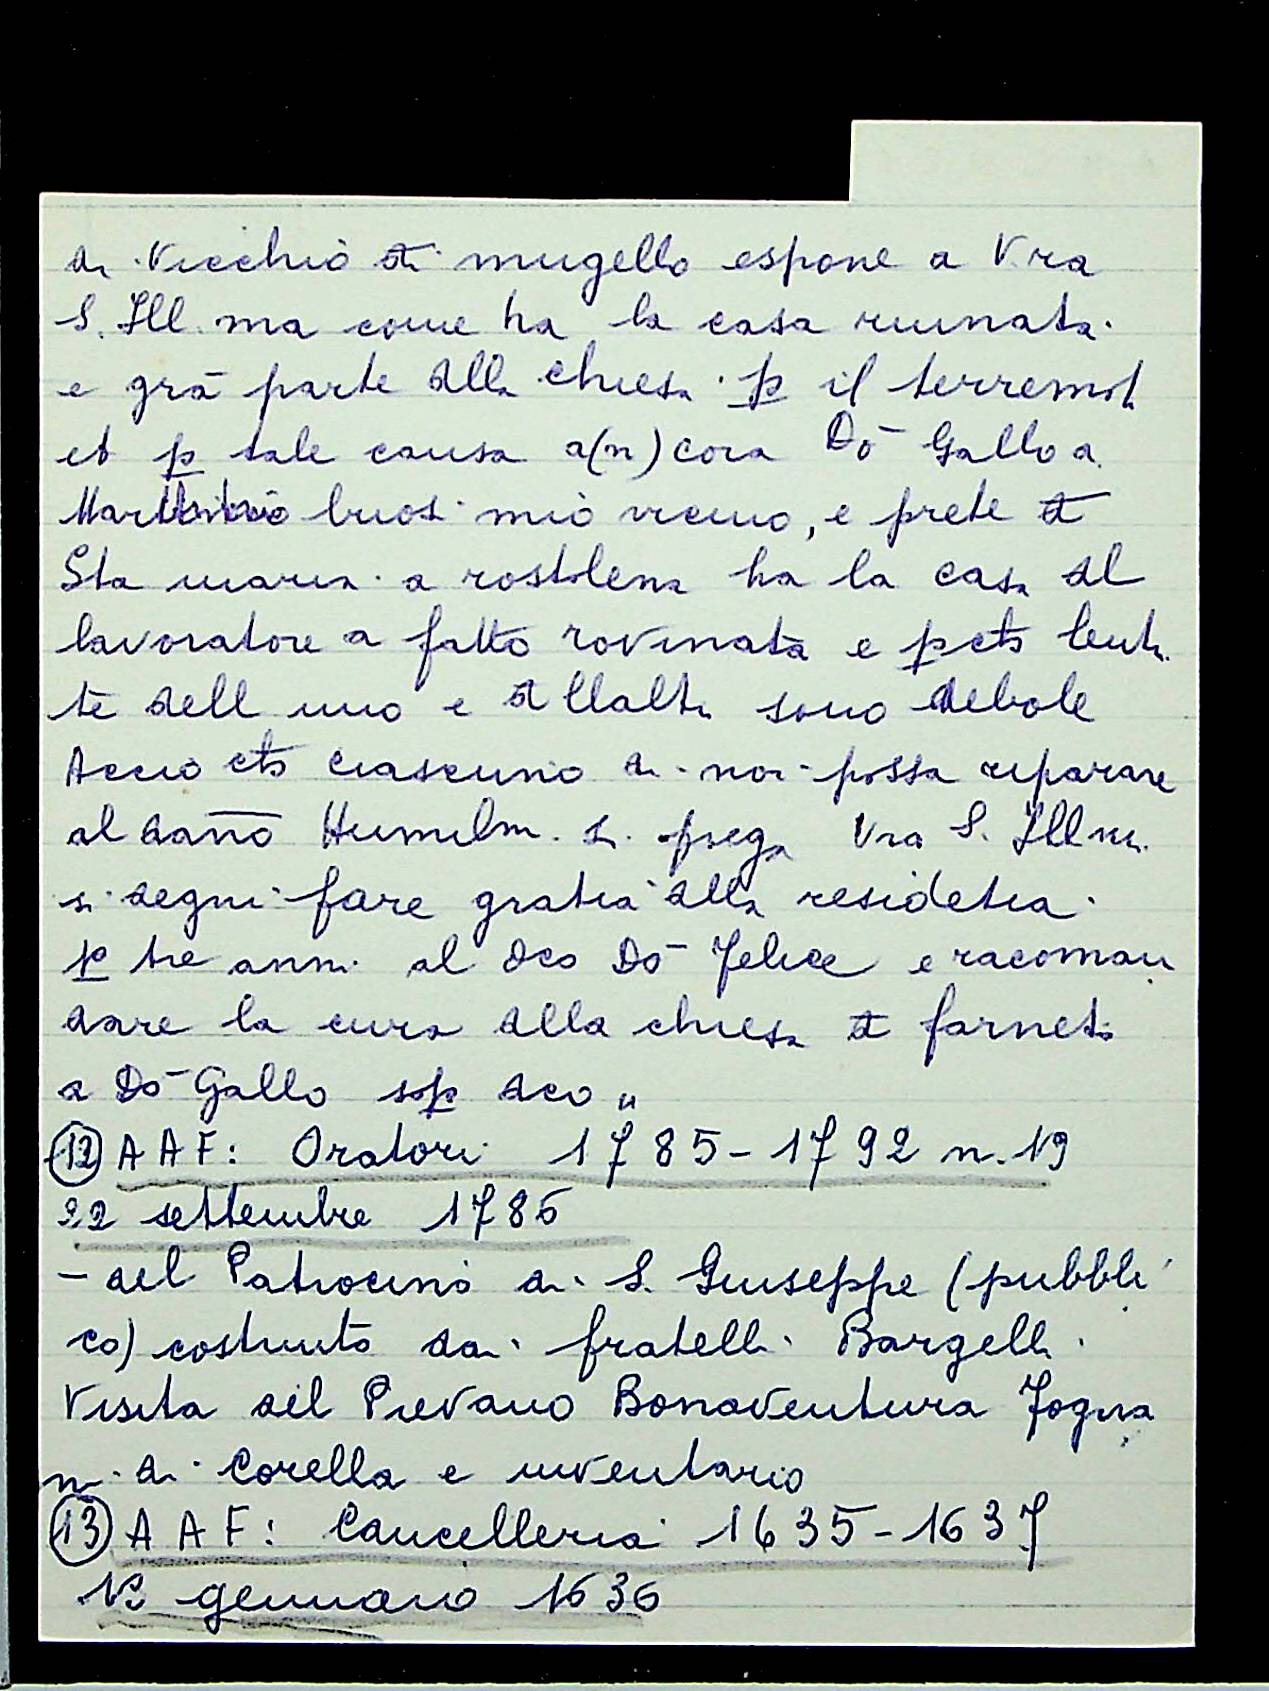 di Vicchio di mugello espone a Vra
S. Ill.ma come ha la casa ruinata
e grā parte della chiesa p il terremoto
et p tale causa a(n)cora Dō Gallo a
buosi mio vicino, e prete di
Sta maria a rostolena ha la casa del
lavoratore a fatto rovinata e
te dell uno e dellaltro sono debole
Acciò ciascuno di noi possa riparare
al daño Humilm. si prega Vra S. Illm.
si degni fare gratia della residetia
p tre anni al dco Dō Felice e racoman
dare la cura della chiesa di farneto
a Dō Gallo sop dco "
(12) A A F: Oratori 1785-1792 n. 19
22 settembre 1786
- del Patrocinio di S. Giuseppe (pubbli
co) costruito dai fratelli Bargelli.
Visita del Pievano Bonaventura Fogna
ni di Corella e inventario
(13) A A F: Cancelleria 1635-1637
gennaio 1636